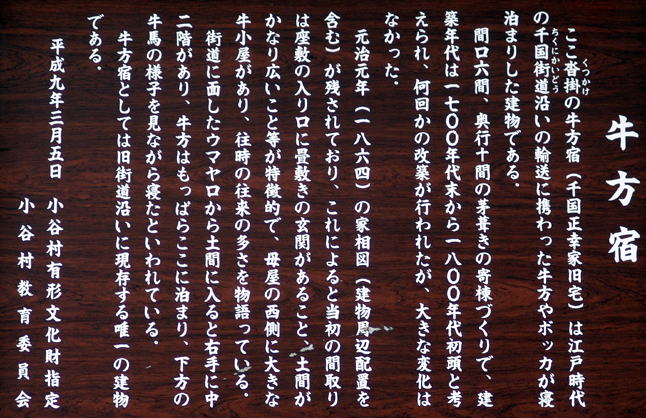 牛方宿
ここ沓掛の牛方宿（千国正幸家旧宅）は江戸時代
の千国街道沿いの輸送に携わった牛方やボッカが寝
泊まりした建物である。
間口六間、奥行十間の茅葺きの寄棟づくりで、建
築年代は一七〇〇年代末から一八〇〇年代初頭と考
えられ、何回かの改築が行われたが、大きな変化は
なかった。
元治元年（一八六四）の家相図（建物周辺配置を
含む）が残されており、これによると当初の間取り
は座敷の入り口に畳敷きの玄関があること、土間が
かなり広いこと等が特徴的で、母屋の西側に大きな
牛小屋があり、往時の往来の多さを物語っている。
街道に面したウマヤロから土間に入ると右手に中
二階があり、牛方はもっぱらここに泊まり、下方の
牛馬の様子を見ながら寝たといわれている。
牛方宿としては旧街道沿いに現存する唯一の建物
である。
平成九年三月五日
小谷村有形文化財指定
小谷村教育委員会
くつかけ
ちくにかいどう